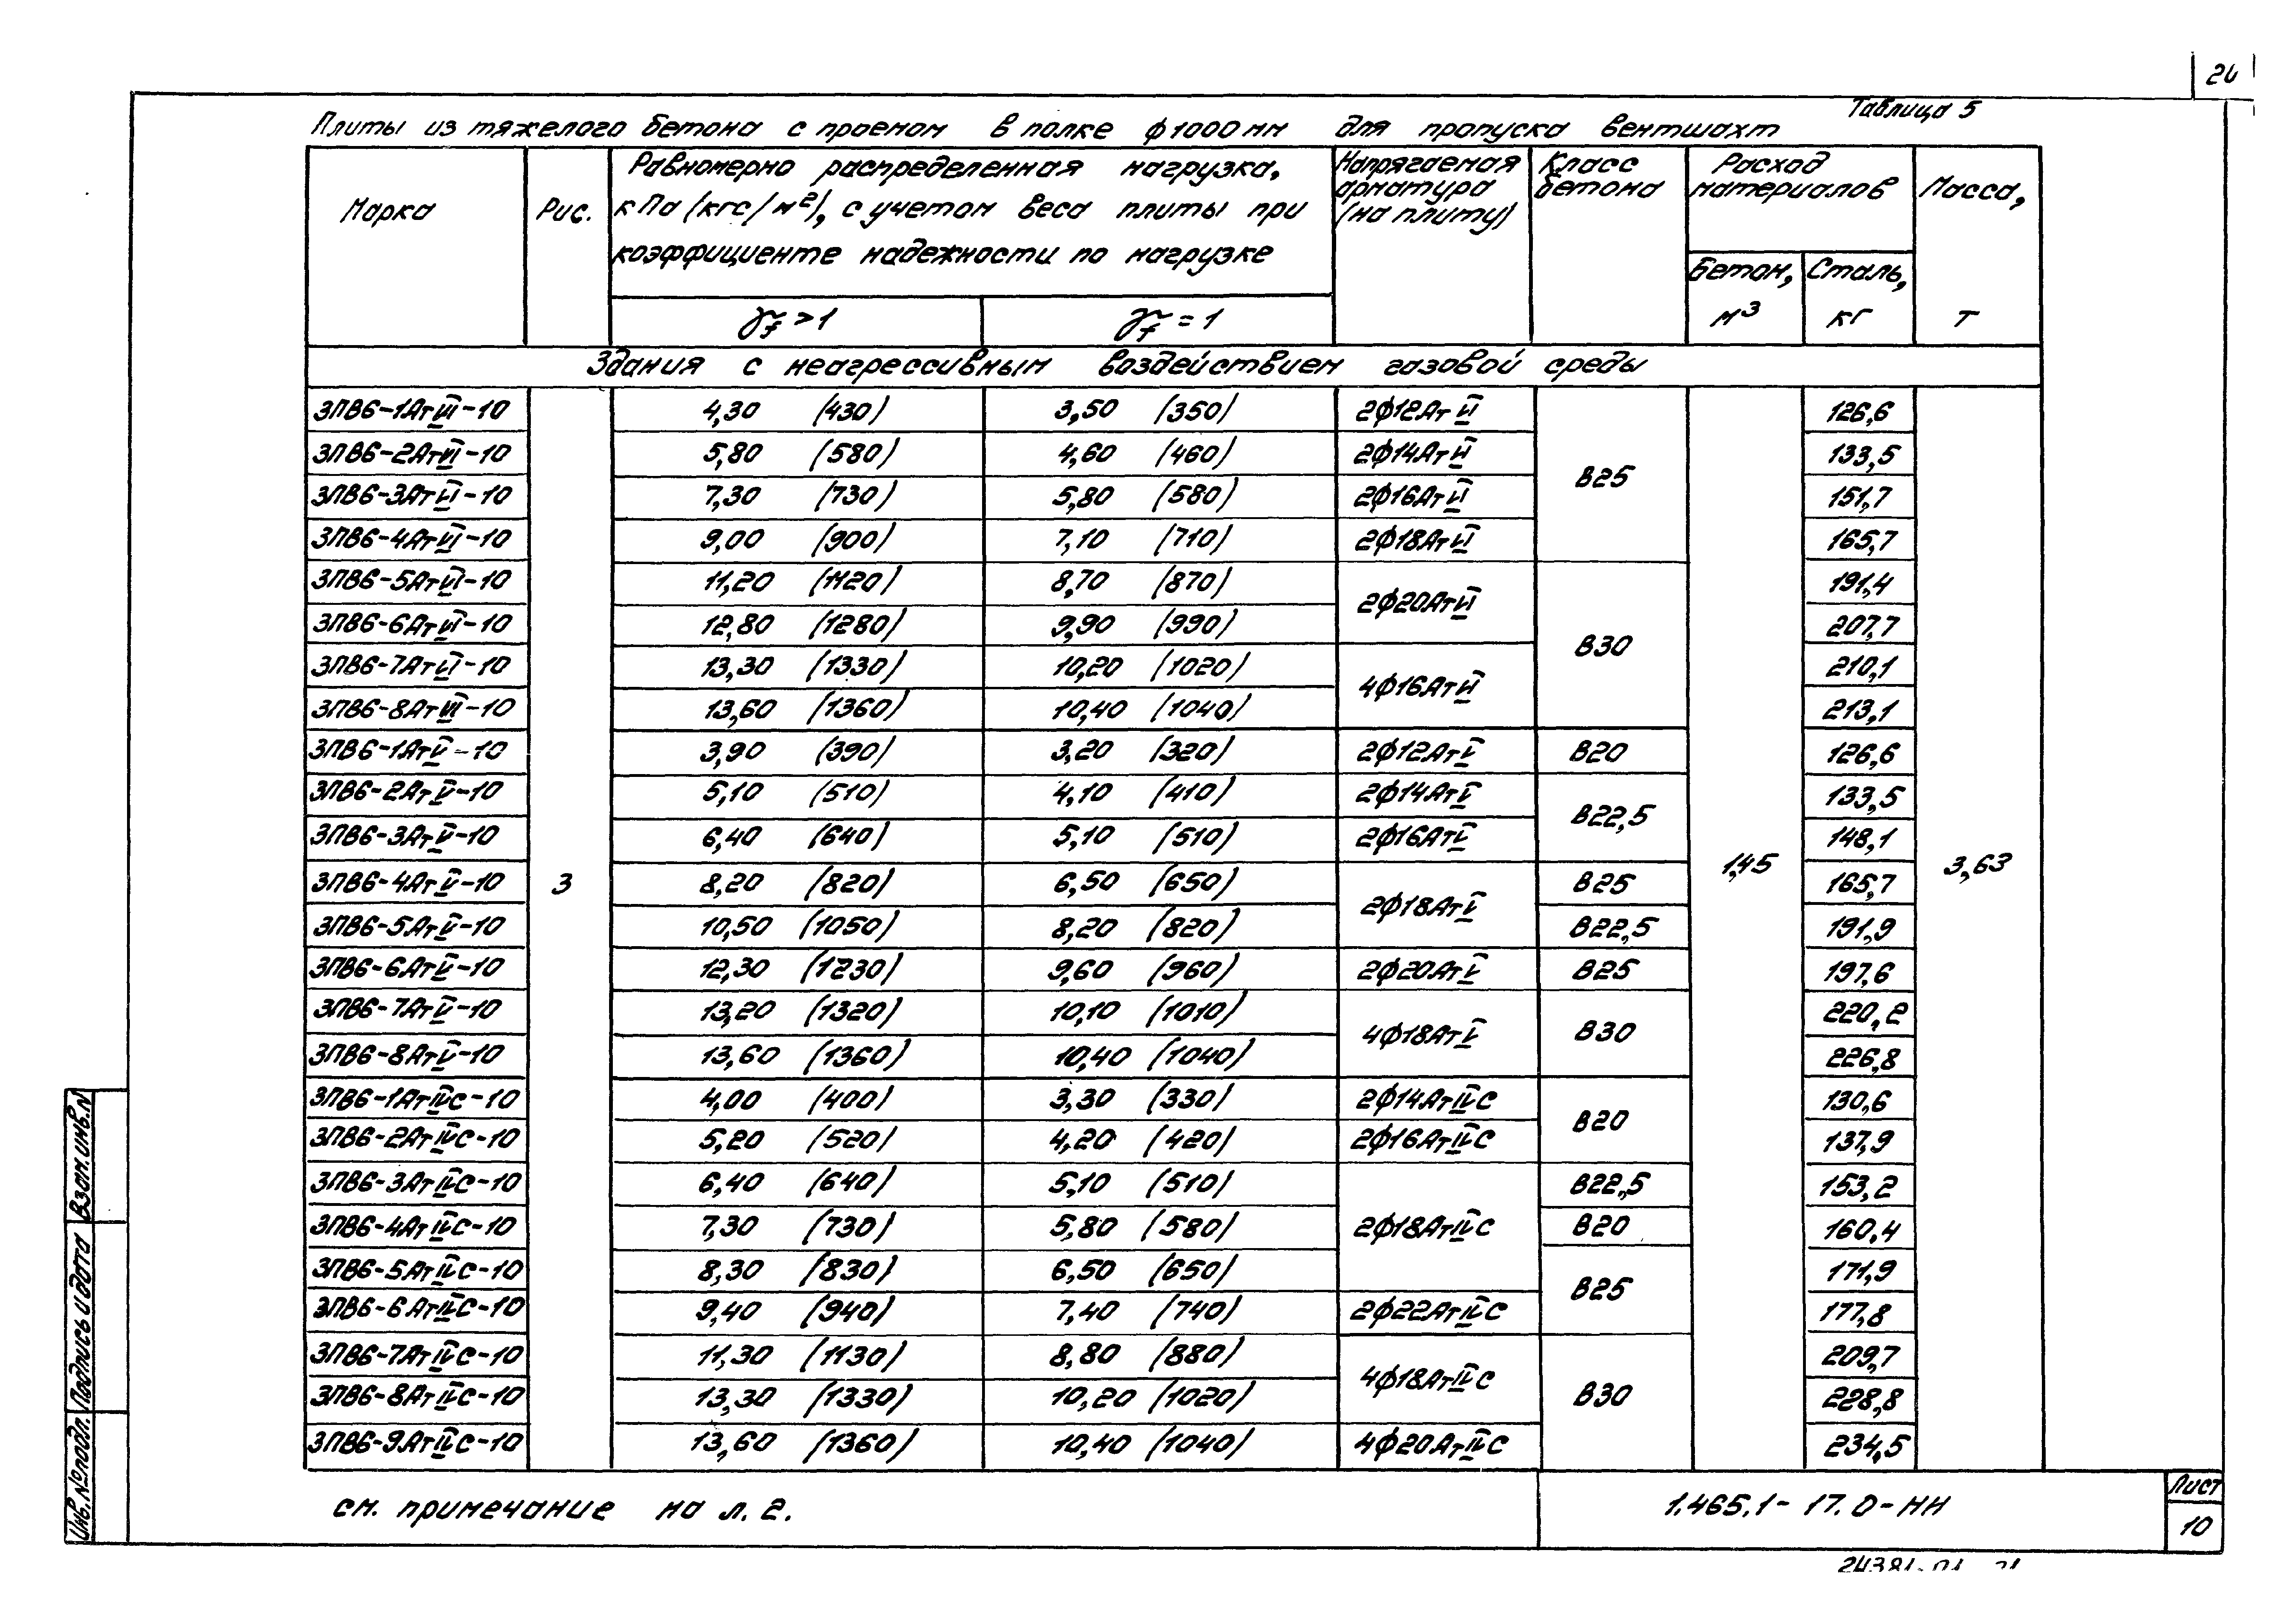 24
Таблица 5
Плиты из тяжелого бетона с проемом в полке ф1000мм для пропуска вентшахт
Марка Рис. Равномерно распределенная нагрузка, кПа (кгс/м²), с учетом веса плиты при коэффициенте надежности по нагрузке Напрягаемая арматура (на плиту) Класс бетона Расход материалов Масса, т
γf > 1 γf = 1 Бетон, м³ Сталь, кг
Здания с неагрессивным воздействием газовой среды
3ПВ6-1АтVI-10 4,30 (430) 3,50 (350) 2ф12АтVI 126,6
3ПВ6-2АтVI-10 5,80 (580) 4,60 (460) 2ф14АтVI 133,5
В25
3ПВ6-3АтVI-10 7,30 (730) 5,80 (580) 2ф16АтVI 151,7
3ПВ6-4АтVI-10 9,00 (900) 7,10 (710) 2ф18АтVI 165,7
3ПВ6-5АтVI-10 11,20 (1120) 8,70 (870) 191,4
2ф20АтVI
3ПВ6-6АтVI-10 12,80 (1280) 9,90 (990) 207,7
В30
3ПВ6-7АтVI-10 13,30 (1330) 10,20 (1020) 210,1
4ф16АтVI
3ПВ6-8АтVI-10 13,60 (1360) 10,40 (1040) 213,1
3ПВ6-1АтV-10 3,90 (390) 3,20 (320) 2ф12АтV В20 126,6
3ПВ6-2АтV-10 5,10 (510) 4,10 (410) 2ф14АтV 133,5
В22,5
3ПВ6-3АтV-10 6,40 (640) 5,10 (510) 2ф16АтV 148,1
3ПВ6-4АтV-10 3 8,20 (820) 6,50 (650) В25 1,45 165,7 3,63
2ф18АтV
3ПВ6-5АтV-10 10,50 (1050) 8,20 (820) В22,5 191,9
3ПВ6-6АтV-10 12,30 (1230) 9,60 (960) 2ф20АтV В25 197,6
3ПВ6-7АтV-10 13,20 (1320) 10,10 (1010) 220,2
4ф18АтV В30
3ПВ6-8АтV-10 13,60 (1360) 10,40 (1040) 226,8
3ПВ6-1АтIVС-10 4,00 (400) 3,30 (330) 2ф14АтIVС 130,6
В20
3ПВ6-2АтIVС-10 5,20 (520) 4,20 (420) 2ф16АтIVС 137,9
3ПВ6-3АтIVС-10 6,40 (640) 5,10 (510) В22,5 153,2
3ПВ6-4АтIVС-10 7,30 (730) 5,80 (580) 2ф18АтIVС В20 160,4
3ПВ6-5АтIVС-10 8,30 (830) 6,50 (650) 171,9
В25
3ПВ6-6АтIVС-10 9,40 (940) 7,40 (740) 2ф22АтIVС 177,8
3ПВ6-7АтIVС-10 11,30 (1130) 8,80 (880) 209,7
4ф18АтIVС
3ПВ6-8АтIVС-10 13,30 (1330) 10,20 (1020) В30 228,8
3ПВ6-9АтIVС-10 13,60 (1360) 10,40 (1040) 4ф20АтIVС 234,5
см. примечание на л. 2.
1.465.1-17.0-НИ
Лист
10
Инв.№подл. Подпись и дата Взам.инв.№
24381-01